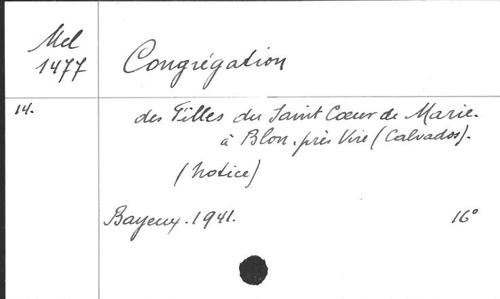 Mel
1477
Congrégation
14.
des Filles du Saint Cœur de Marie.
à Blon. près Vire (Calvados).
(Notice)
Bayeux. 1941. 16°